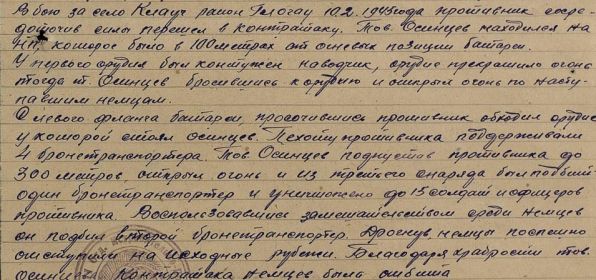 В бою за село Клауч район Глогау 10.2.1945 года противник сосре-
доточив силы перешел в контратаку. Тов. Осинцев находился на
НП, которое было в 100 метрах от огневых позиции батареи.
У первого орудия был контужен наводчик, орудие прекратило огонь
тогда т. Осинцев бросившись к орудию и открыл огонь по насту-
павшим немцам.
С левого фланга батареи, просочившись противник обходил орудие
у которой стоял Осинцев. Пехоту противника поддерживали
4 бронетранспортера. Тов Осинцев подпустив противника до
300 метров, открыл огонь и из третьего снаряда был подбит
один бронетранспортер и уничтожено до 15 солдат и офицеров
противника. Воспользовавшись замешательством среди немцев
он подбил второй бронетранспортер. Дрогнув немцы поспешно
отступили на исходные рубежи. Благодаря храбрости тов.
Осинцев контратака немцев была отбита